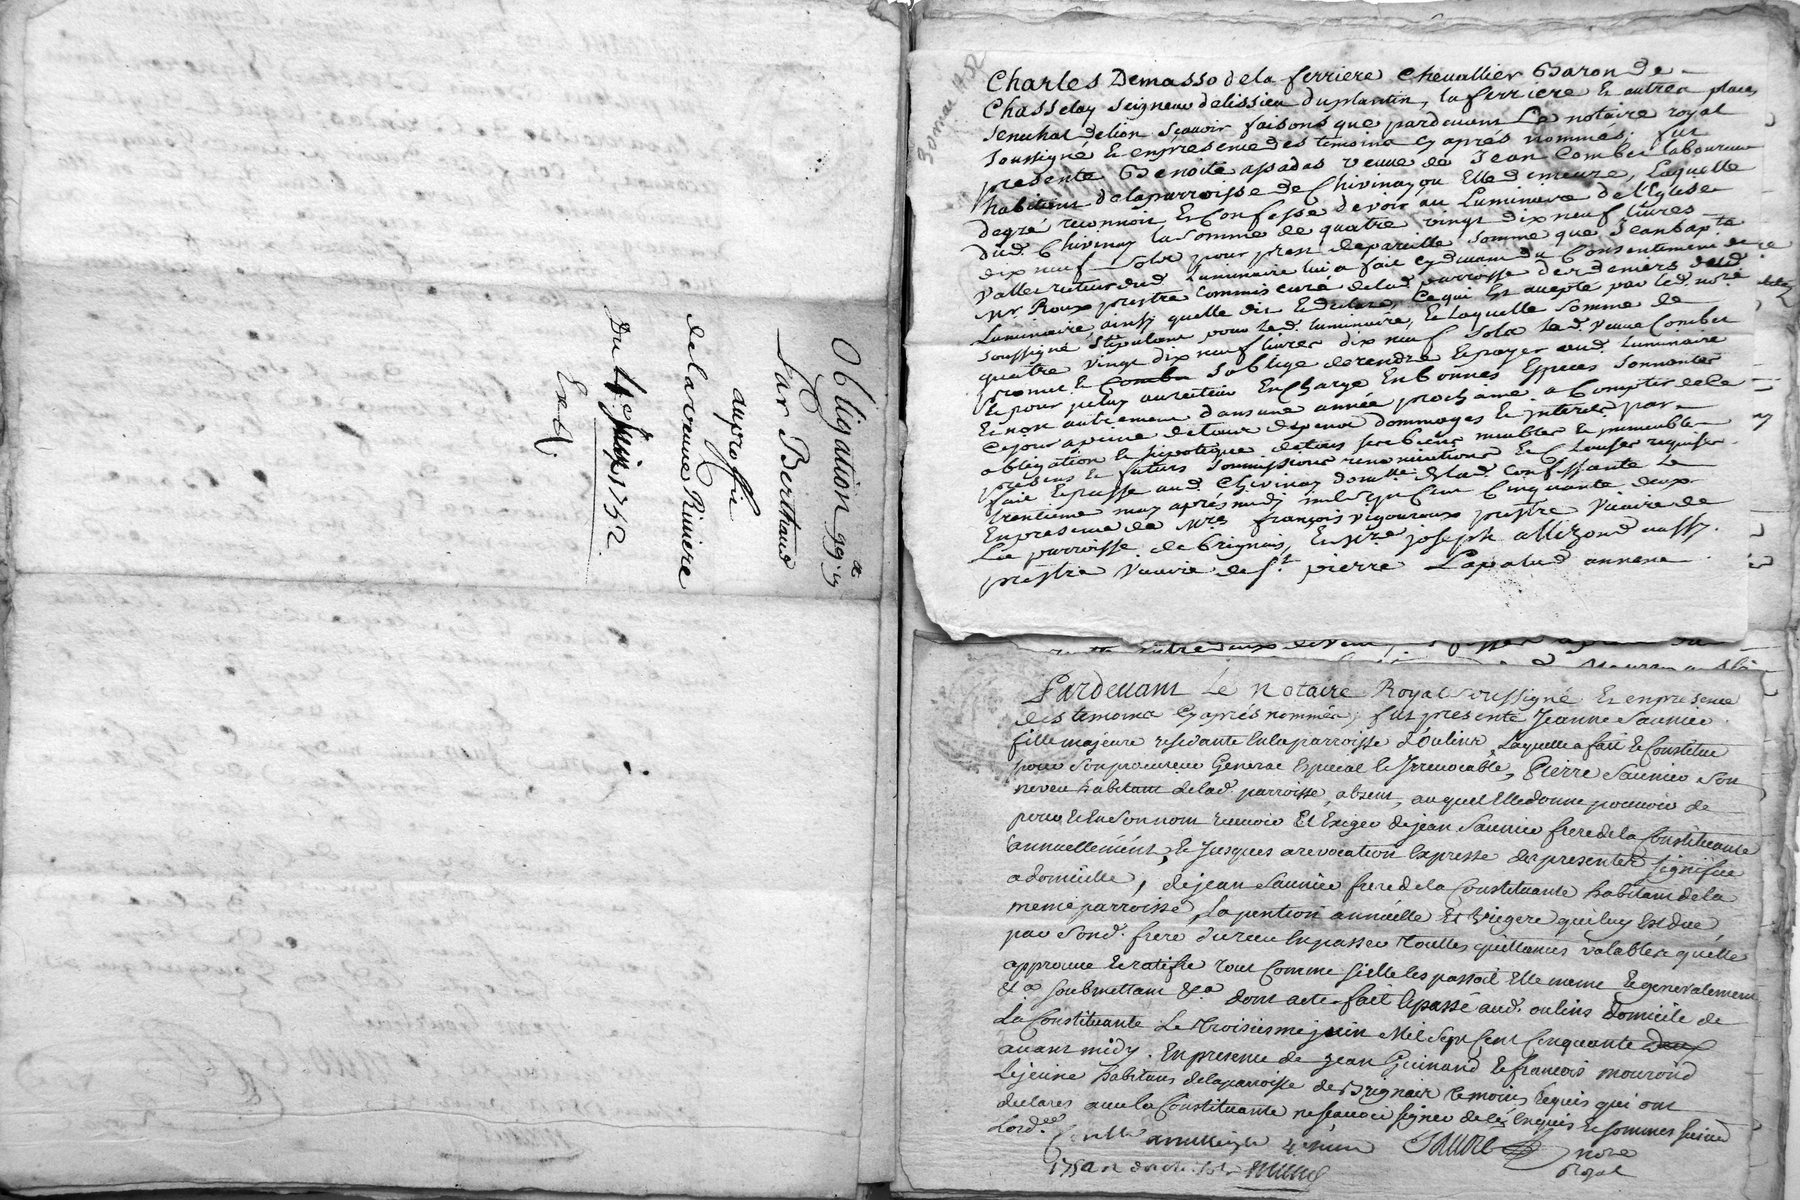 Obligation 99ᵗᵗ 19ˢ
Par Berthaud
au proffit
de la veuve Riviere
Du 4e Juin 1752.
Exp.
30 mai 1752
Charles Demasso de la ferriere Chevallier Baron de
Chasselay seigneur delissieu duplantin, la ferriere Et autres places
senechal delion scavoir faisons que pardevant Le notaire royal
soussigné Et enpresence des temoins Cy aprés nommés. fut
presente Benoite assadas veuve de Jean Combet laboureur
habitant delaparroisse de Chivinay ou Elle demeure, Laquelle
degré reconnoit Et Confesse devoir au Luminaire del'Eglise
dud. Chivinay la somme de quatre vingt dix neuf livres
dix neuf sols pour prest depareille somme que Jean Bapte
Vallet recteur dud Luminaire lui a fait cydevant du Consentement de
Mr. Roux prestre commis curé delad. parroisse des deniers dud
Luminaire, ainsy quelle dit Et declare, Ce qui Est accepté par led. nore
soussigné stipulant pour led. luminaire, Et laquelle somme de
quatre vingt dix neuf livres dix neuf sols lad. veuve Combet
promet Et Combet s'oblige derendre Et payer aud. Luminaire
Et pour jceluy aurecteur En Charge En bonnes Especes sonnantes
Et non autrement dans une année prochaine. a Compter de ce
Cejour apeine detous depens dommages Et interets par
obligation Et hipoteque detous ses biens meubles Et immeubles
presens Et futurs soumissions renonciations Et Clauses requises
fait Et passé aud. Chivinay domlle delad. confessante Le
trentieme may aprés midy mil sept Cent Cinquante deux
En presence de Mre françois Vigouroux prestre Vicaire de
La parroisse de brignais, Et Mre joseph allezond aussy
prestre vicaire de st pierre Lapalud annexe
Pardevant Le Notaire Royal soussigné Et en presence
des temoins Cy aprés nommés, fut presente Jeanne Saunier
fille majeure residante En la parroisse d'oulins, Laquelle a fait Et Constitue
pour son procureur General Special Et Irrevocable, Pierre Saunier son
neveu habitant delad. parroisse, absent, auquel Elle donne pouvoir de
pour Et En son nom recevoir Et Exiger de jean Saunier frere de la Constituante
annuellement, Et Jusques a revocation Expresse des presentes signifiée
a domicille, de jean Saunier frere de la Constituante habitant de la
meme parroisse, La pention annuelle Et Viegere qui luy Est due
par sond. frere du recu En passer touttes quittances valables qu'elle
approuve Et ratifie tout comme si elle les passoit Elle meme Et generalement
&a soubmettant &a dont acte fait Et passé aud. oulins domicile de
La Constituante Le troisieme juin Mil Sept Cent Cinquante deux
avant midy. En presence de Jean Guinand Et francois mourond
Lejeune habitans de la parroisse de Brignais temoins requis qui ont
declarés avec la Constituante ne scavoir signer de ce Enquis Et sommes suivant
Lordce
Controllé 4e juin
1752 R douze sols
Faure nore Royal